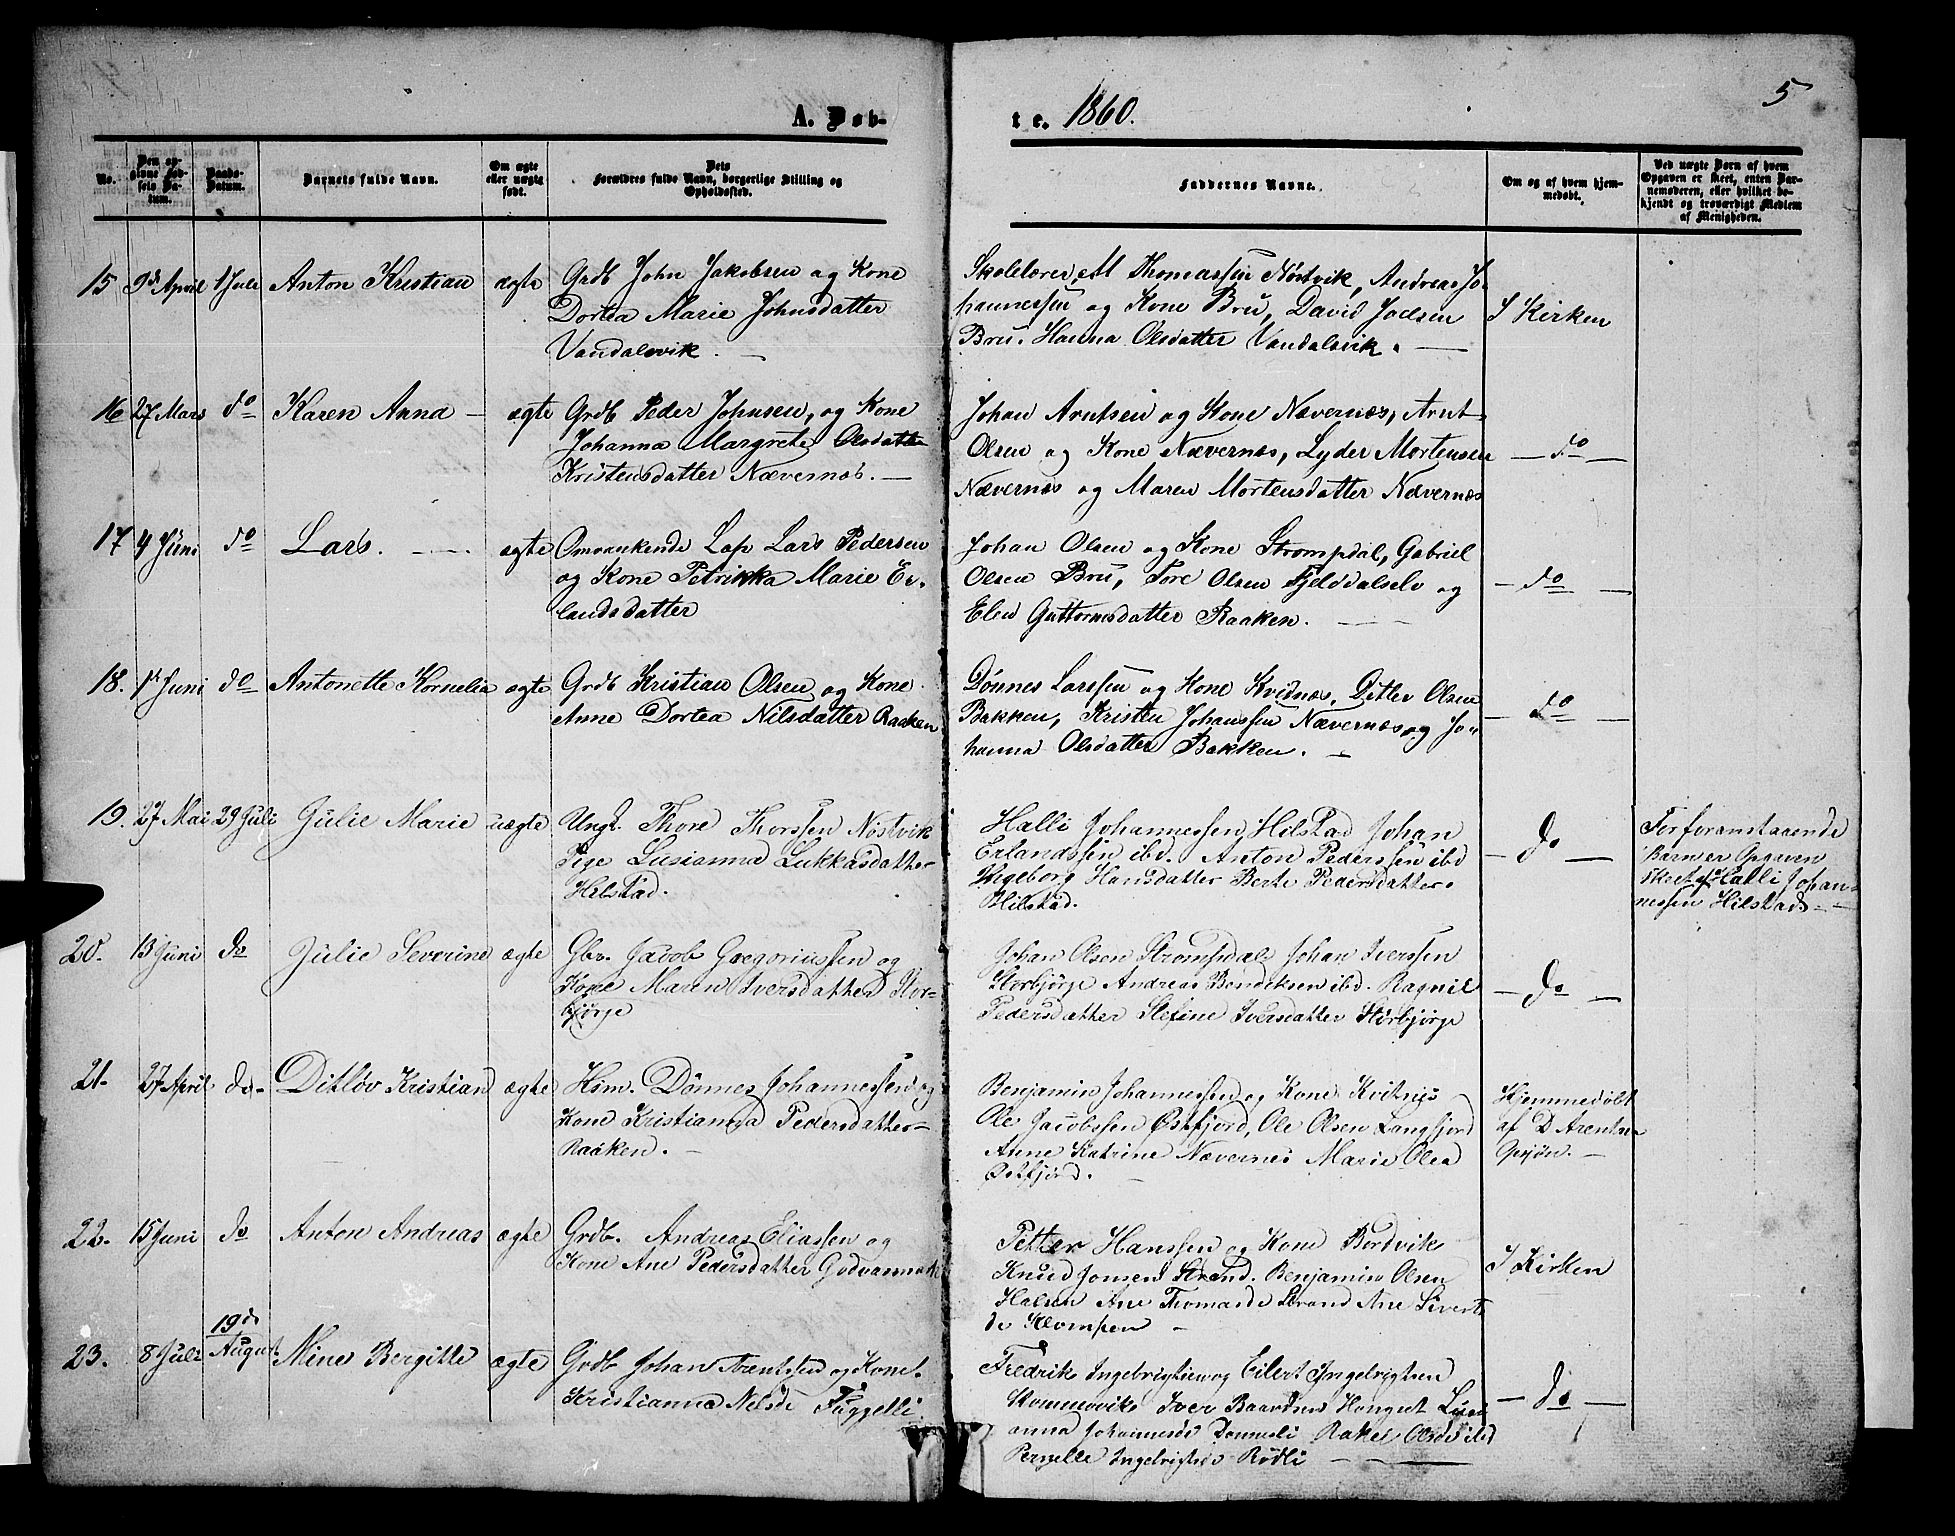 5
A. Døb-
te. 1860.
No.
Den op-
givne Fød-
sels Da-
tum.
Daabs-
Datum.
Barnets fulde Navn.
Om ægte
eller uægte
født.
Dets
Forældres fulde Navn, borgerlige Stilling og
Opholdssted.
Faddernes Navne.
Om og af hvem hjem-
medøbt.
Ved uægte Børn af hvem
Opgaven er skeet, enten Bar-
nemoderen, eller hvilket be-
kjendt og troværdigt Medlem
af Menigheden.
15 9de April 1 Juli Anton Kristian ægte Grdb John Jakobsen og Kone
Dortea Marie Johnsdatter
Vandalsvik.
Skolelærer M Thomassen Nøstvik, Andreas Jo-
hannessen og Kone Bru, David Joelsen
Bru. Hanna Olsdatter Vandalsvik.
I Kirken
16 27 Mars do Karen Anna ægte Grdb Peder Johnsen, og Kone
Johanna Margrete Olsdatter
Kristensdatter Nævernes.
Johan Arntsen og Kone Nævernæs, Arnt
Olsen og Kone Nævernæs, Lyder Mortensen
Nævernæs og Maren Mortensdatter Nævernæs
do
17 4 Juni do Lars. ægte Omvankende Lap Lars Pedersen
og Kone Petrikka Marie Er-
landsdatter
Johan Olsen og Kone Strompdal, Gabriel
Olsen Bru, Tore Olsen Fjeldalselv og
Elen Guttormsdatter Raaken.
do
18. 1st Juni do Antonette Kornelia ægte Grdb Kristian Olsen og Kone
Anne Dortea Nilsdatter Raaken
Dønnes Larssen og Kone Kvidnæs, Ditlev Olsen
Bakken, Kristen Johanssen Nævernæs og Jo-
hanna Olsdatter Bakken.
do
19. 27 Mai 29 Juli Julie Marie uægte Ungk. Thore Thorssen Nøstvik
Pige Lusianna Lukkasdatter
Hilstad.
Halli Johannessen Hilstad Johan
Erlandssen ibd. Anton Pederssen ibd
Ingeborg Hansdatter Berte Pedersdatter
Hilstad.
do
For foranstaaende
Barn er Opgaven
skeet af Halli Johan-
nessen Hilstad
20. 13 Juni do Julie Severine ægte Gbr. Jacob Gregoriussen og
Kone Maren Iversdatter Stor-
bjørge
Johan Olsen Strompdal Johan Iverssen
Storbjørge Andreas Bendiksen ibd. Ragnil
Pedersdatter Stefine Iversdatter Storbjørge
do
21. 27 April do Ditløv Kristian ægte Hsm. Dønnes Johannessen og
Kone Kristianna Pedersdatter
Raaken.
Benjamin Johannessen og Kone Kvitnes
Ole Jacobssen Østfjord, Ole Olsen Langfjord
Anne Katrine Nævernes Marie Olea
Østfjord.
Hjemmedøbt
af D Arentsen
22. 15 Juni do Anton Andreas ægte Grdb. Andreas Eliassen og
Kone Ane Pedersdatter Godvasmark
Petter Hanssen og Kone Bordvik
Knud Jonsen Strand. Benjamin Olsen
Halsen Ane Thomasd. Strand Ane Siverts
d. Klompen
I Kirken
23. 8 Juli 19de August Mine Bergitte ægte Grdb Johan Arentssen og Kone
Kristianna Nelsd. Fuggelli
Fredrik Ingebrigtsen og Eilert Ingebrigtsen
Iver Baardsen Lusi
anna Johannesd. Rakel Olsd. ibd
Pernelle Ingebrigtsd. Rødli
do